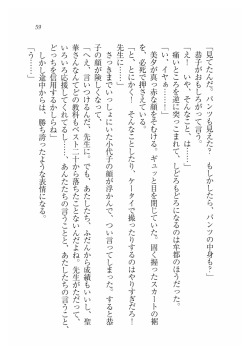 59
「見てたんだ。パンツも見えた？ もしかしたら、パンツの中身も？」
恭子がおもしろがって言う。
「え！ いや、そんなこと、は……」
痛いところを逆に突っこまれて、しどろもどろになるのは牟都のほうだった。
「い、イヤぁ……」
美夕が真っ赤な顔をそむける。ギュッと目を閉じていた。固く握ったスカートの裾
を、必死で押さえている。
「と、とにかく！ そんなことしたり、ケータイで撮ったりするのはやりすぎだろ！
先生に……」
さっきまでいっしょにいた小代子の顔が浮かんで、つい言ってしまった。すると恭
子の顔が険しくなって、
「へえ、言いつけるんだ、先生に。でも、あたしたち、ふだんから成績もいいし、聖
華さんなんてどの教科もベスト二十から落ちたことないんだよね。先生がただって、
いろいろ応援してくれてるし……、あんたたちの言うことと、あたしたちの言うこと、
どっちを信用するかしらね」
しかも途中からは、勝ち誇ったような表情になる。
「う……」